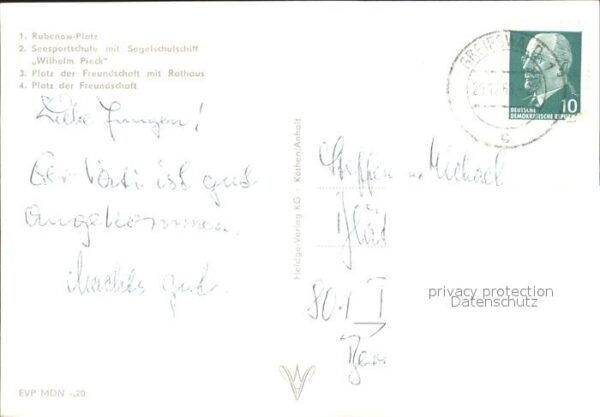 1. Rubenow-Platz
2. Seesportschule mit Segelschulschiff
„Wilhelm Pieck"
3. Platz der Freundschaft mit Rathaus
4. Platz der Freundschaft
Liebe Jungen!
Der Vati ist gut
angekommen.
Machts gut.
EVP MDN -,20
Heldge-Verlag KG · Köthen/Anhalt
GREIFSWALD 1
10
DEUTSCHE
DEMOKRATISCHE REPUBLIK
Steffen u. Michael
801
privacy protection
Datenschutz